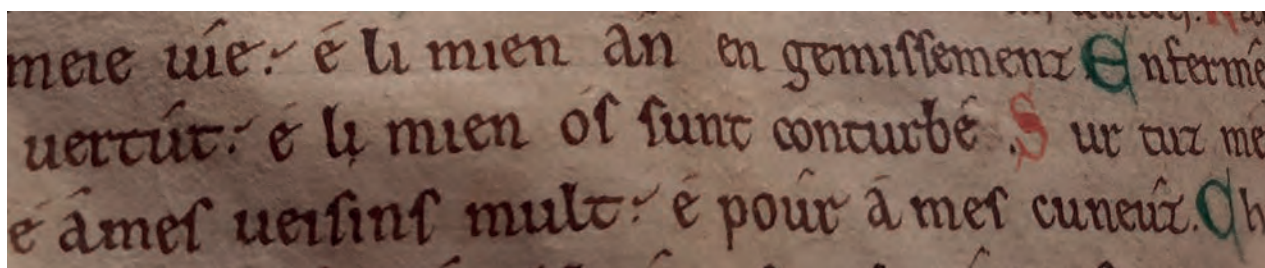 meie uíe: é li mien án en gemissement Enfermé
uertút: é li mien ós sunt conturbé. Sur tuz me
é á mes ueisins mult: é póur á mes cuneúz. Ch